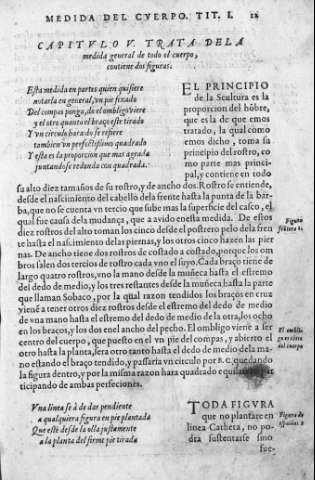 MEDIDA DEL CVERPO. TIT. I.
CAPITVLO V. TRATA DELA
medida general de todo el cuerpo,
contiene dos figuras.
Esta medida en partes quien quisiere
notarla en general, vn pie fixado
Del compas ponga, do el ombligo viere
y el otro quanto el braço este tirado
Y vn circulo hara do se refiere
tambien vn perfectissimo quadrado
Y esta es la proporcion que mas agrada
juntandose redonda con quadrada.
EL PRINCIPIO
de la Scultura es la
proporcion del hõbre,
que es la de que emos
tratado, la qual como
emos dicho, toma sa
principio del rostro, co
mo parte mas princi-
pal, y contiene en todo
su alto diez tamaños de su rostro, y de ancho dos. Rostro se entiende,
desde el nascimiento del cabello dela frente hasta la punta de la bar
ba, que no se cuenta vn tercio que sube mas la superficie del casco, el
qual fue causa dela mudança, que a avido enesta medida. De estos
diez rostros del alto toman los cinco desde el postrero pelo dela fren
te hasta el nascimiento de las piernas, y los otros cinco hazen las pier
nas. De ancho tiene dos rostros de costado a costado, porque los om
bros salen dos tercios de rostro cada vno el suyo. Cada braço tiene de
largo quatro rostros, vno la mano desde la muñeca hasta el estremo
del dedo de medio, y los tres restantes desde la muñeca hasta la parte
que llaman Sobaco, por la qual razon tendidos los braços en cruz
viene a tener otros diez rostros desde el estremo del dedo de medio
de vna mano hasta el estremo del dedo de medio de la otra, los ocho
en los braços, y los dos enel ancho del pecho. El ombligo viene a ser
centro del cuerpo, que puesto en el vn pie del compas, y abierto el
otro hasta la planta, sera otro tanto hasta el dedo de medio dela ma-
no estando el braço tendido, y passaria vn circulo por
la figura dentro, y por la misma razon hara quadrado
ticipando de ambas perfeciones.
Figura
El ombli
go es cẽtro
del cuerpo
Vna linea se à de dar pendiente
a qualquiera figura en pie plantada
Que este desde la olla justamente
a la planta del firme pie tirada
TODA FIGVRA
que no plantare en
linea Catheta, no po
dra sustentarse sino
fue-
Figura de